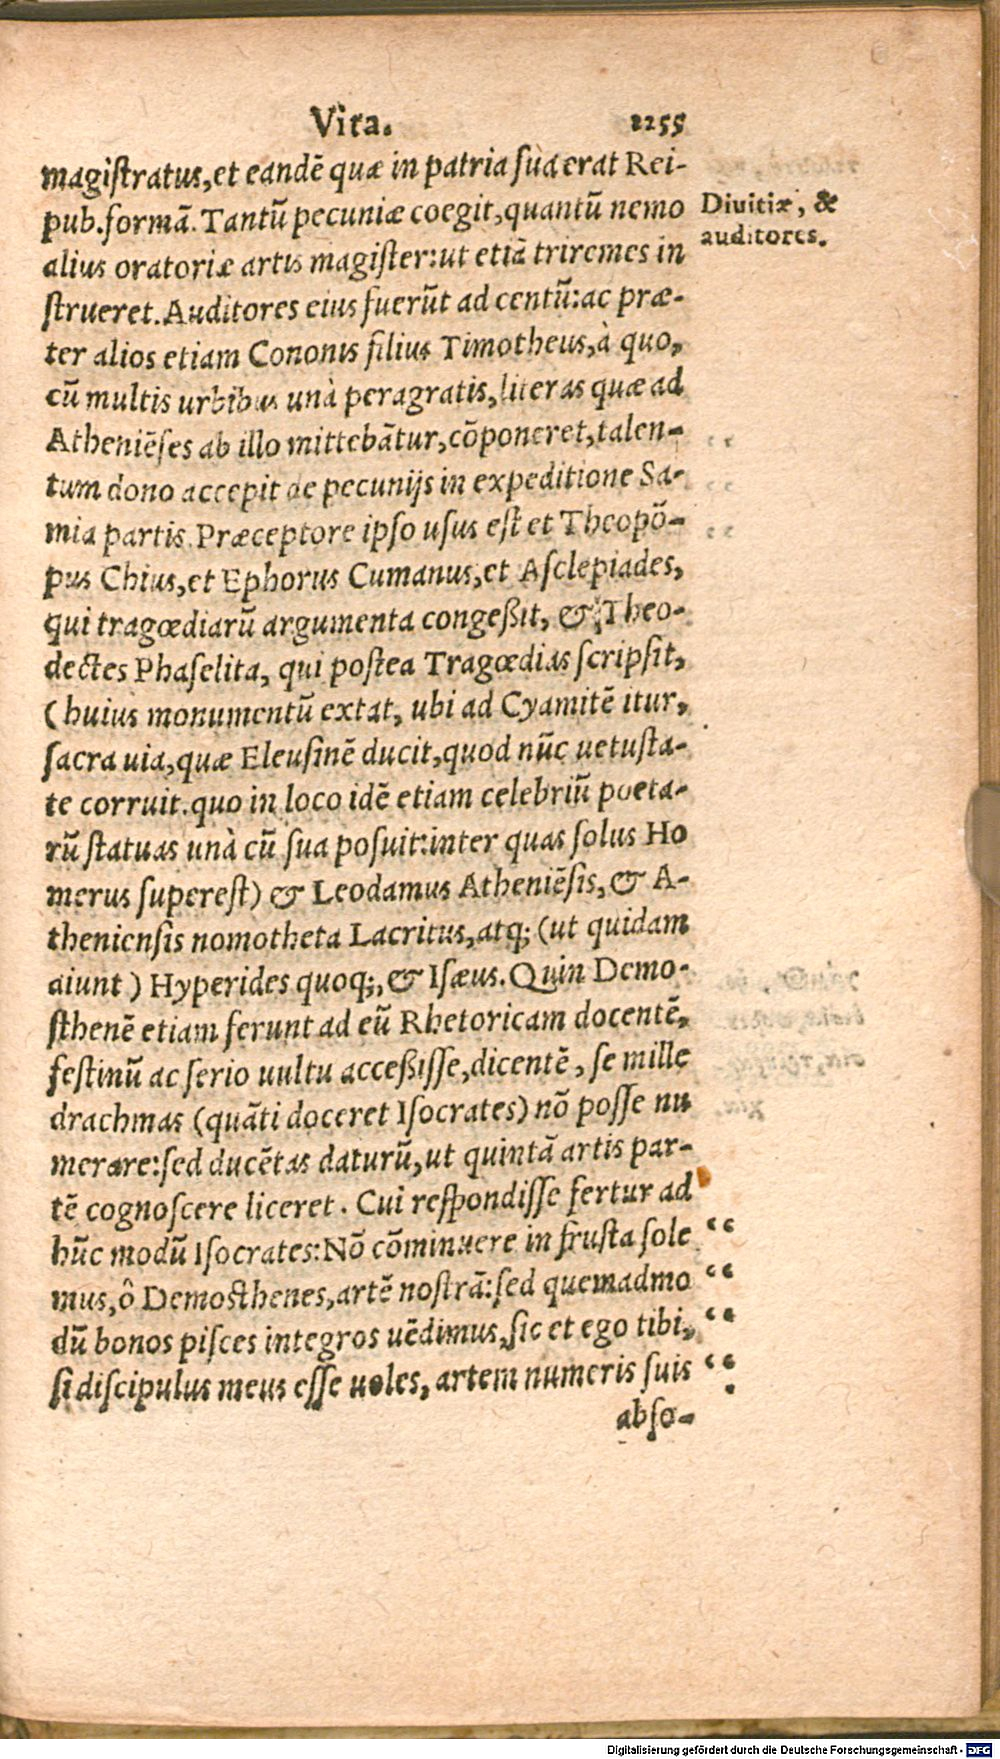 Vita. 1255
magiſtratus, et eandē quæ in patria ſua erat Rei-
pub. formā. Tantū pecuniæ coegit, quantū nemo
Diuitiæ, &
alius oratoriæ artis magiſter: ut etiā triremes in
auditores.
ſtrueret. Auditores eius fuerūt ad centū: ac præ-
ter alios etiam Cononis filius Timotheus, à quo,
cū multis urbibus unà peragratis, literas quæ ad
Atheniēſes ab illo mittebātur, cōponeret, talen-
tum dono accepit de pecunijs in expeditione Sa-
mia partis. Præceptore ipſo uſus eſt et Theopō-
pus Chius, et Ephorus Cumanus, et Aſclepiades,
qui tragœdiarū argumenta congeßit, & Theo-
dectes Phaſelita, qui poſtea Tragœdias ſcripſit,
(huius monumentū extat, ubi ad Cyamitē itur,
ſacra uia, quæ Eleuſinē ducit, quod nūc uetuſta-
te corruit. quo in loco idē etiam celebriū poeta-
rū ſtatuas unà cū ſua poſuit: inter quas ſolus Ho
merus ſupereſt) & Leodamus Atheniēſis, & A-
thenienſis nomotheta Lacritus, atq; (ut quidam
aiunt) Hyperides quoq;, & Iſæus. Quin Demo-
ſthenē etiam ferunt ad eū Rhetoricam docentē,
feſtinū ac ſerio uultu acceßiſſe, dicentē, ſe mille
drachmas (quāti doceret Iſocrates) nō poſſe nu
merare: ſed ducētas daturū, ut quintā artis par-
tē cognoſcere liceret. Cui reſpondiſſe fertur ad
hūc modū Iſocrates: Nō cōminuere in fruſta ſole “
mus, ô Demoſthenes, artē noſtrā: ſed quemadmo “
dū bonos piſces integros uēdimus, ſic et ego tibi, “
ſi diſcipulus meus eſſe uoles, artem numeris ſuis “
abſo-
Digitalisierung gefördert durch die Deutsche Forschungsgemeinschaft - DFG